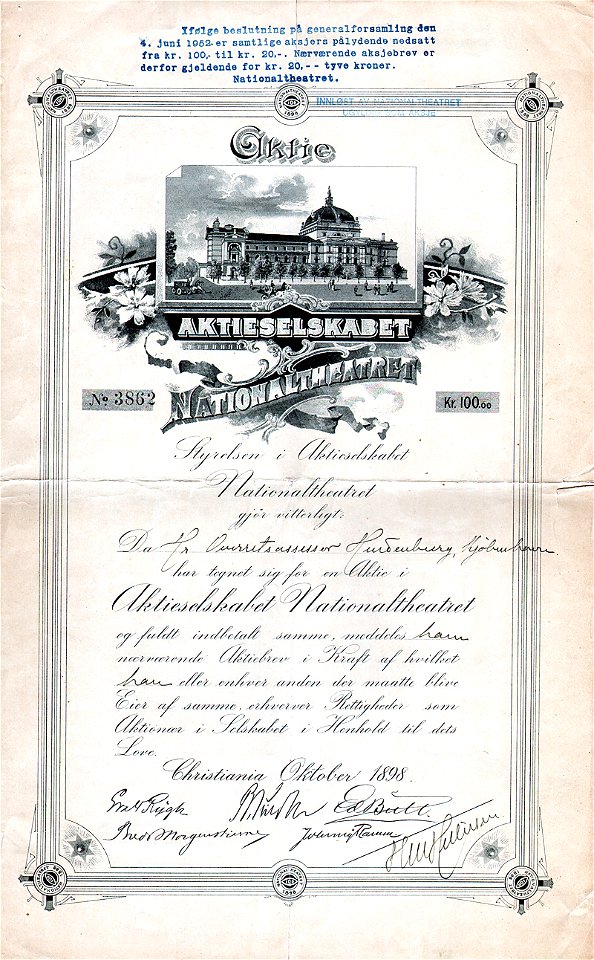 Ifølge beslutning på generalforsamling den
4. juni 1952 er samtlige aksjers pålydende nedsatt
fra kr. 100,- til kr. 20,-. Nærværende aksjebrev er
derfor gjeldende for kr. 20,-- tyve kroner.
Nationaltheatret.
INNLØST AV NATIONALTHEATRET
Aktie
AKTIESELSKABET
NATIONALTHEATRET
No 3862
Kr. 100.00
Styrelsen i Aktieselskabet
Nationaltheatret
gjör vitterligt:
Da Hr. Overretsassessor Kjöbenhavn
har tegnet sig for en Aktie i
Aktieselskabet Nationaltheatret
og fuldt indbetalt samme, meddeles ham
nærværende Aktiebrev i Kraft af hvilket
han eller enhver anden der maatte blive
Eier af samme, erhverver Rettigheder som
Aktionær i Selskabet i Henhold til dets
Love.
Christiania Oktober 1898.
Bredo Morgenstierne